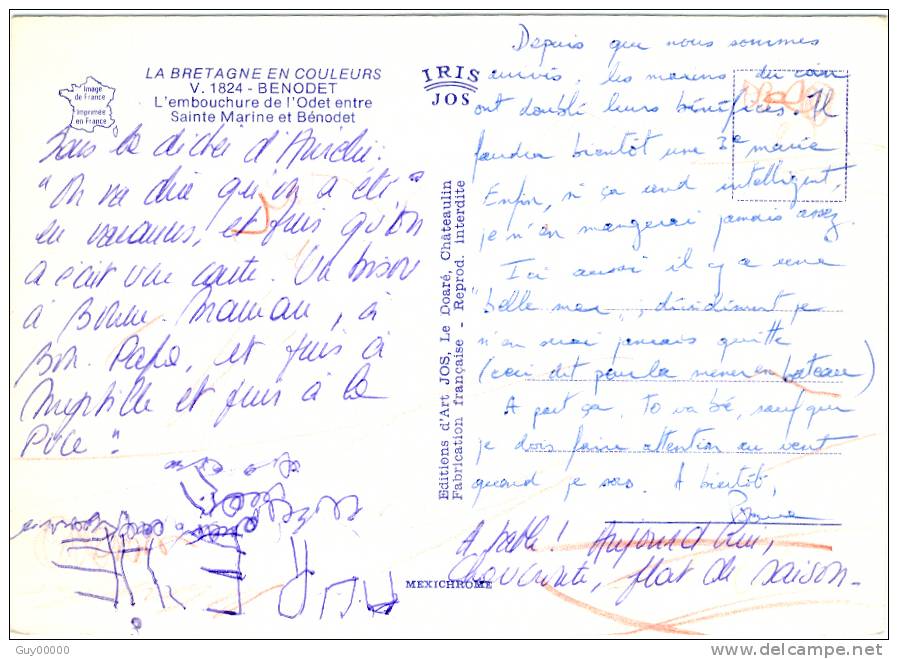 LA BRETAGNE EN COULEURS
V. 1824 - BENODET
L'embouchure de l'Odet entre
Sainte Marine et Bénodet
Image
de France
Imprimée
en France
IRIS
JOS
Sous la dictée d'Aurélie :
"On va dire qu'on a été
en vacances, et puis qu'on
a écrit une carte. Un bisou
à Bonne-Maman, à
Bon-Papa, et puis à
Myrtille et puis à la
Puce".
Editions d'Art JOS, Le Doaré, Châteaulin
Fabrication française - Reprod. interdite
Depuis que nous sommes
arrivés, les marins du coin
ont doublé leurs bénéfices. Il
faudra bientôt une 3e marie
Enfin, si ça rend intelligent,
je n'en mangerai jamais assez.
Ici aussi il y a une
"belle mer", décidément je
n'en serai jamais quitte
(ceci dit pour la mener en bateau)
A part ça, to va bé, sauf que
je dois faire attention au vent
quand je sors. A bientôt,
A table ! Aujourd'hui,
choucroute, plat de saison-
MEXICHROME
Guy00000
delcampe.net